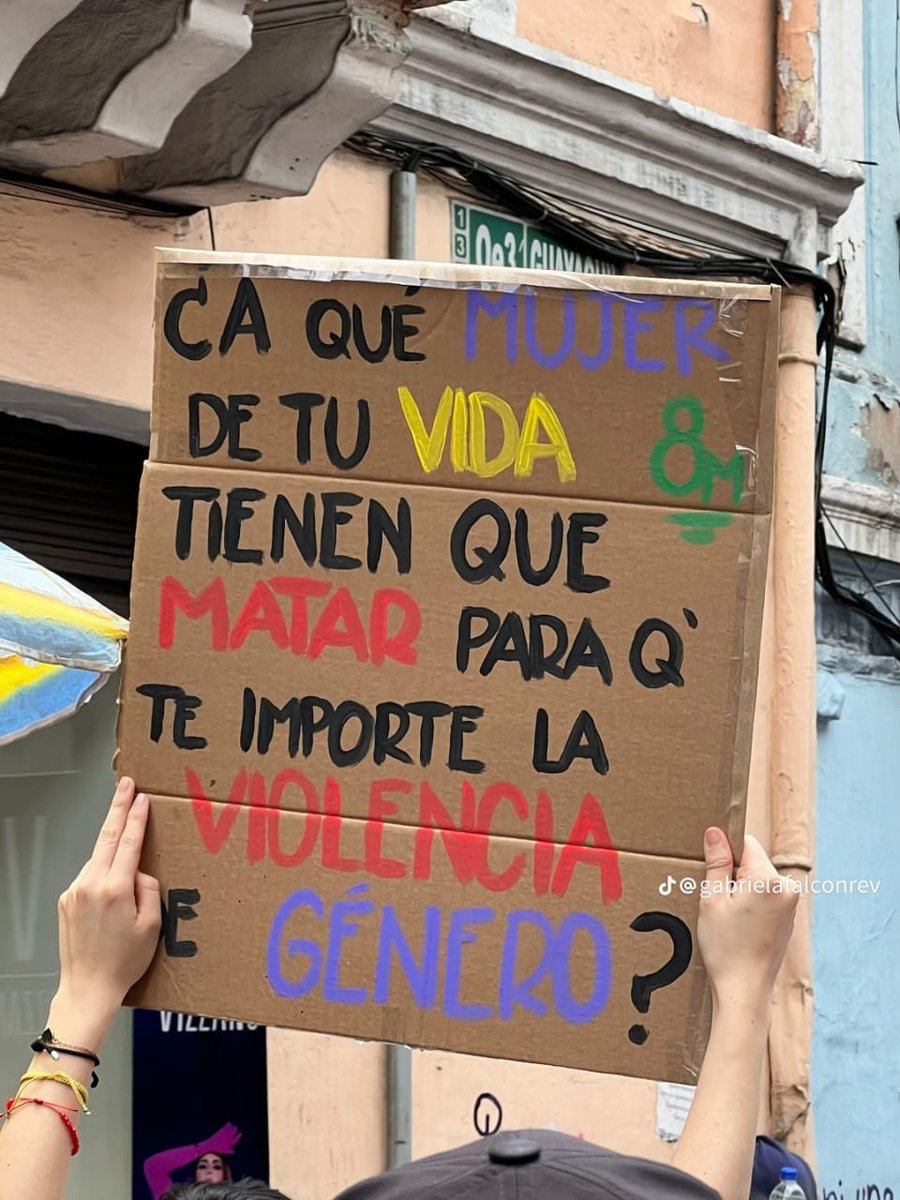 Oe3 GUAYAQUIL
¿A QUÉ MUJER
DE TU VIDA
8M
TIENEN QUE
MATAR PARA Q'
TE IMPORTE LA
VIOLENCIA
DE GÉNERO?
@gabrielafalconrev